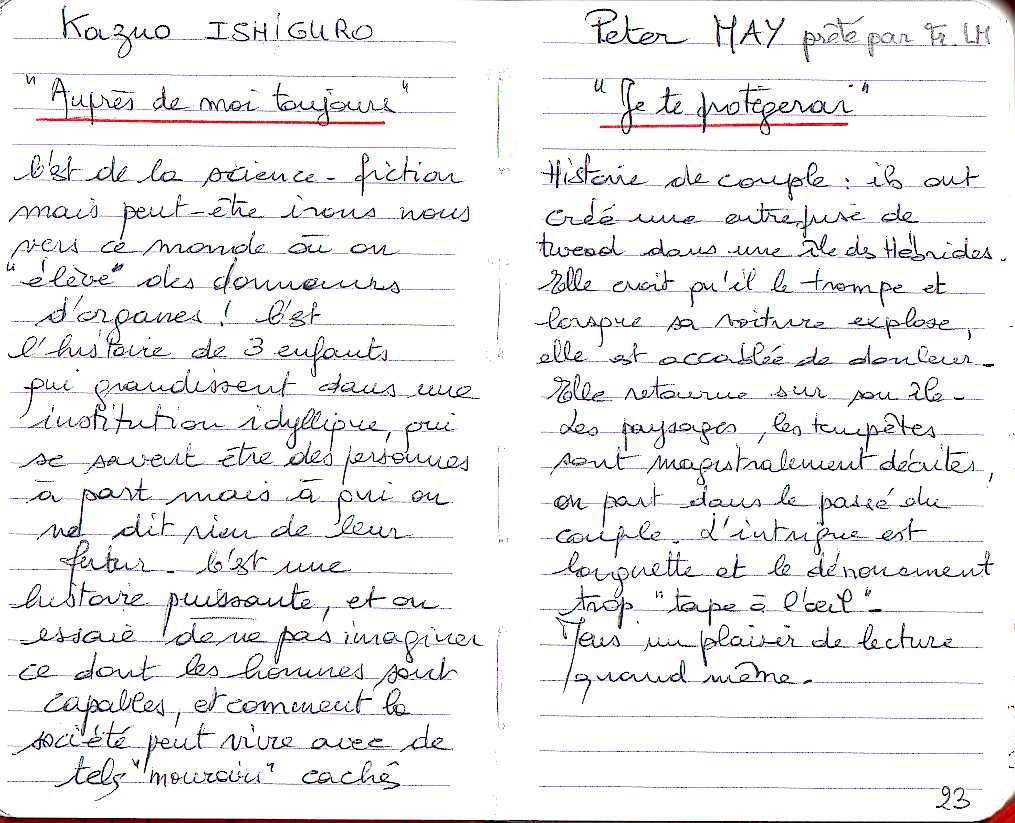 Kazuo ISHIGURO
"Auprès de moi toujours"
C'est de la science-fiction
mais peut-être irons nous
vers ce monde où on
"élève" des donneurs
d'organes ! C'est
l'histoire de 3 enfants
qui grandissent dans une
institution idyllique, qui
se savent être des personnes
à part mais à qui on
ne dit rien de leur
futur - C'est une
histoire puissante, et on
essaie de ne pas imaginer
ce dont les hommes sont
capables, et comment la
société peut vivre avec de
tels "mouroirs" cachés
Peter MAY prêté par Fr. LM
"Je te protègerai"
Histoire de couple : ils ont
créé une entreprise de
tweed dans une île des Hébrides.
Elle croit qu'il le trompe et
lorsque sa voiture explose,
elle est accablée de douleur -
Elle retourne sur son île -
Les paysages, les tempêtes
sont magistralement décrites,
on part dans le passé du
couple - L'intrigue est
longuette et le dénouement
trop "tape à l'œil" -
Mais un plaisir de lecture
quand même -
23